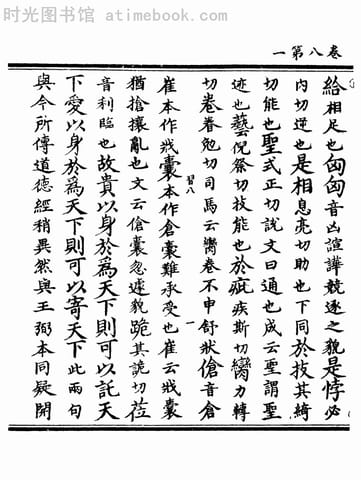 时光图书馆 - atimebook.com
卷八第一
給相足也匈匈音凶諠譁競逐之貌是悖必
内切逆也是相息亮切助也下同於技其綺
切能也聖式正切說文曰通也成云聖謂聖
迹也藝倪祭切技能也於疵疾斯切臠力轉
切卷眷勉切司馬云臠卷不申舒狀傖音倉
習八 一
崔本作戕囊本作倉囊難承受也崔云戕囊
猶搶攘亂也文云傖囊忽遽貌跪其詭切莅
音利臨也故貴以身於爲天下則可以託天
下愛以身於爲天下則可以寄天下此兩句
與今所傳道德經稍異然與王弼本同疑開